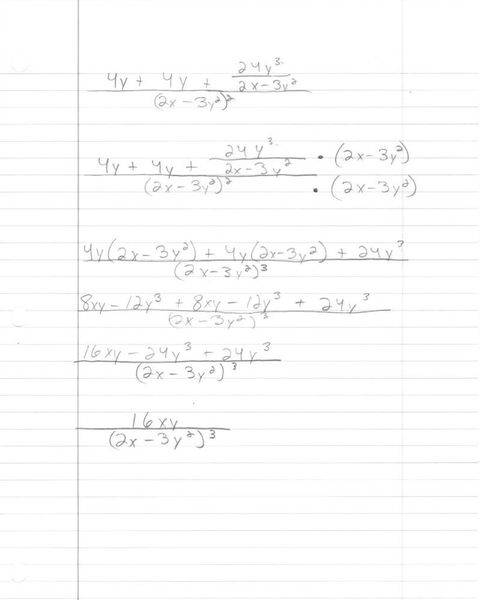 4y + 4y + 24y³/(2x - 3y²)
(2x - 3y²)²
4y + 4y + 24y³/(2x - 3y²) • (2x - 3y²)
(2x - 3y²)² • (2x - 3y²)
4y(2x - 3y²) + 4y(2x - 3y²) + 24y³
(2x - 3y²)³
8xy - 12y³ + 8xy - 12y³ + 24y³
(2x - 3y²)³
16xy - 24y³ + 24y³
(2x - 3y²)³
16xy
(2x - 3y²)³